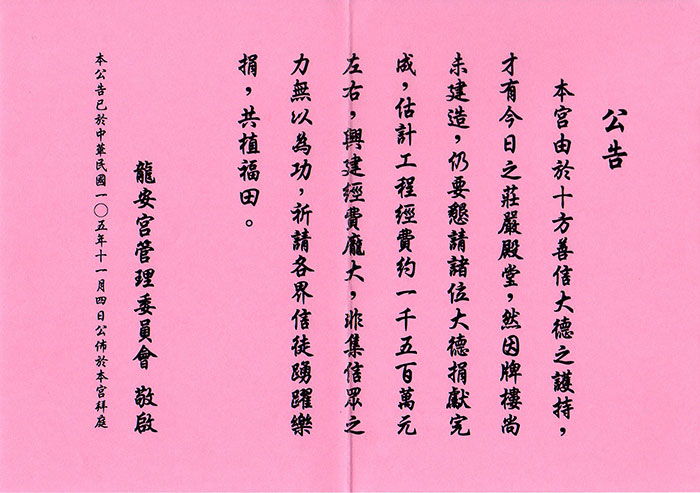 公告
本宮由於十方善信大德之護持，
才有今日之莊嚴殿堂，然因牌樓尚
未建造，仍要懇請諸位大德捐獻完
成，估計工程經費約一千五百萬元
左右，興建經費龐大，非集信眾之
力無以為功，祈請各界信徒踴躍樂
捐，共植福田。
龍安宮管理委員會 敬啟
本公告已於中華民國一〇五年十一月四日公佈於本宮拜庭